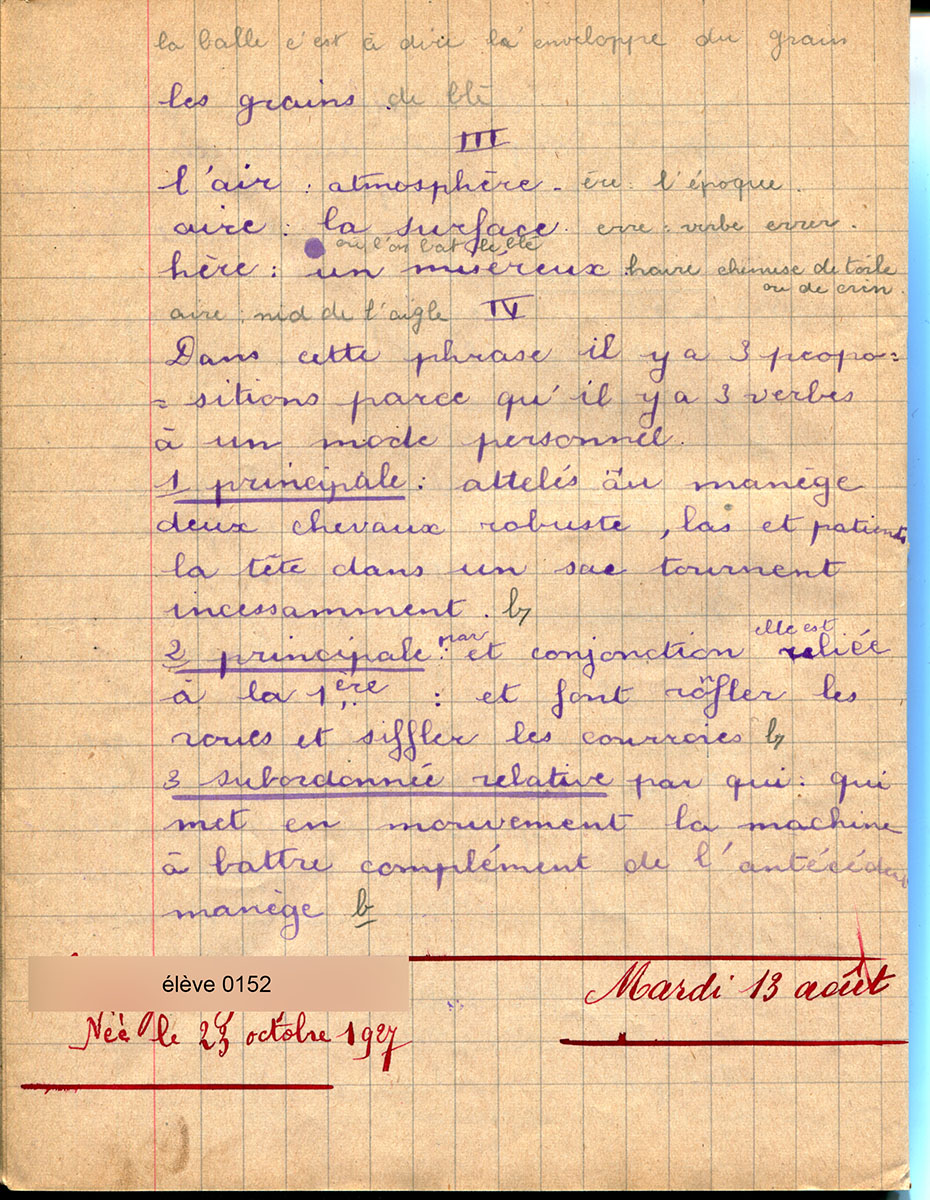 la balle c'est à dire la enveloppe du grain
les grains. de blé
III
l'air : atmosphère - ère : l'époque.
aire : la surface. erre : verbe errer.
ou l'on bat le blé
hère : un miséreux haire chemise de toile
ou de crin.
aire : nid de l'aigle IV
Dans cette phrase il y a 3 propo=
= sitions parce qu'il y a 3 verbes
à un mode personnel.
1 principale : attelés au manège
deux chevaux robuste, las et patients
la tête dans un sac tournent
incessamment. b
par elle est
2 principale : et conjonction reliée
à la 1ère : et font ronfler les
roues et siffler les courroies b
3 subordonnée relative par qui : qui
met en mouvement la machine
à battre complément de l'antécédent
manège b
élève 0152
Mardi 13 août
Née le 23 octobre 1927